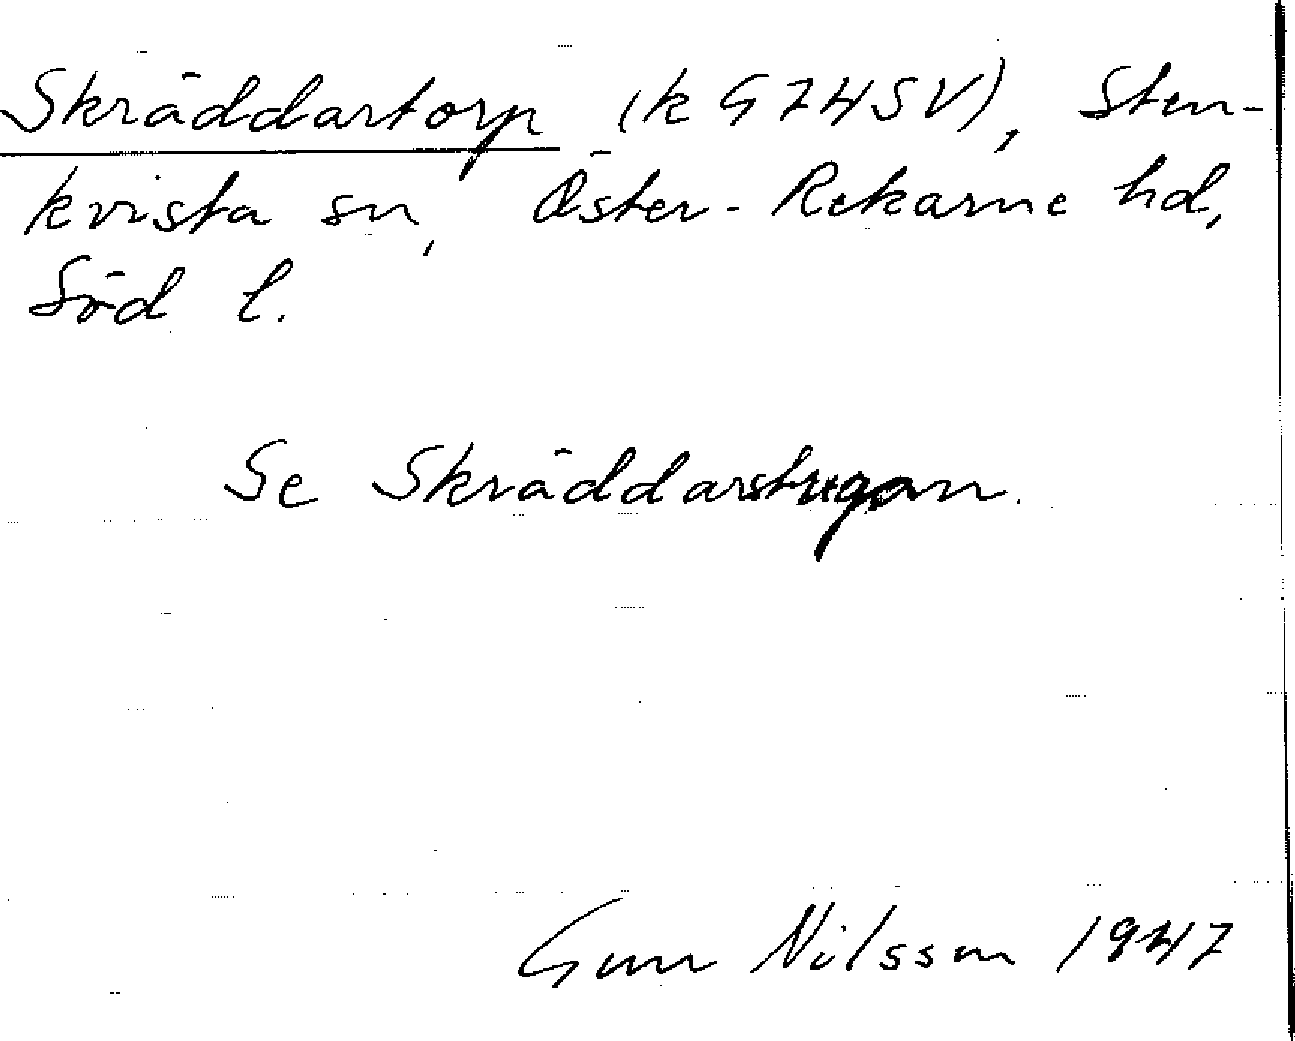 Skräddartorp (k G7HSV), Sten-
kvista sn, Öster-Rekarne hd,
Söd l.
Se Skräddarstugan.
Gun Nilsson 1947